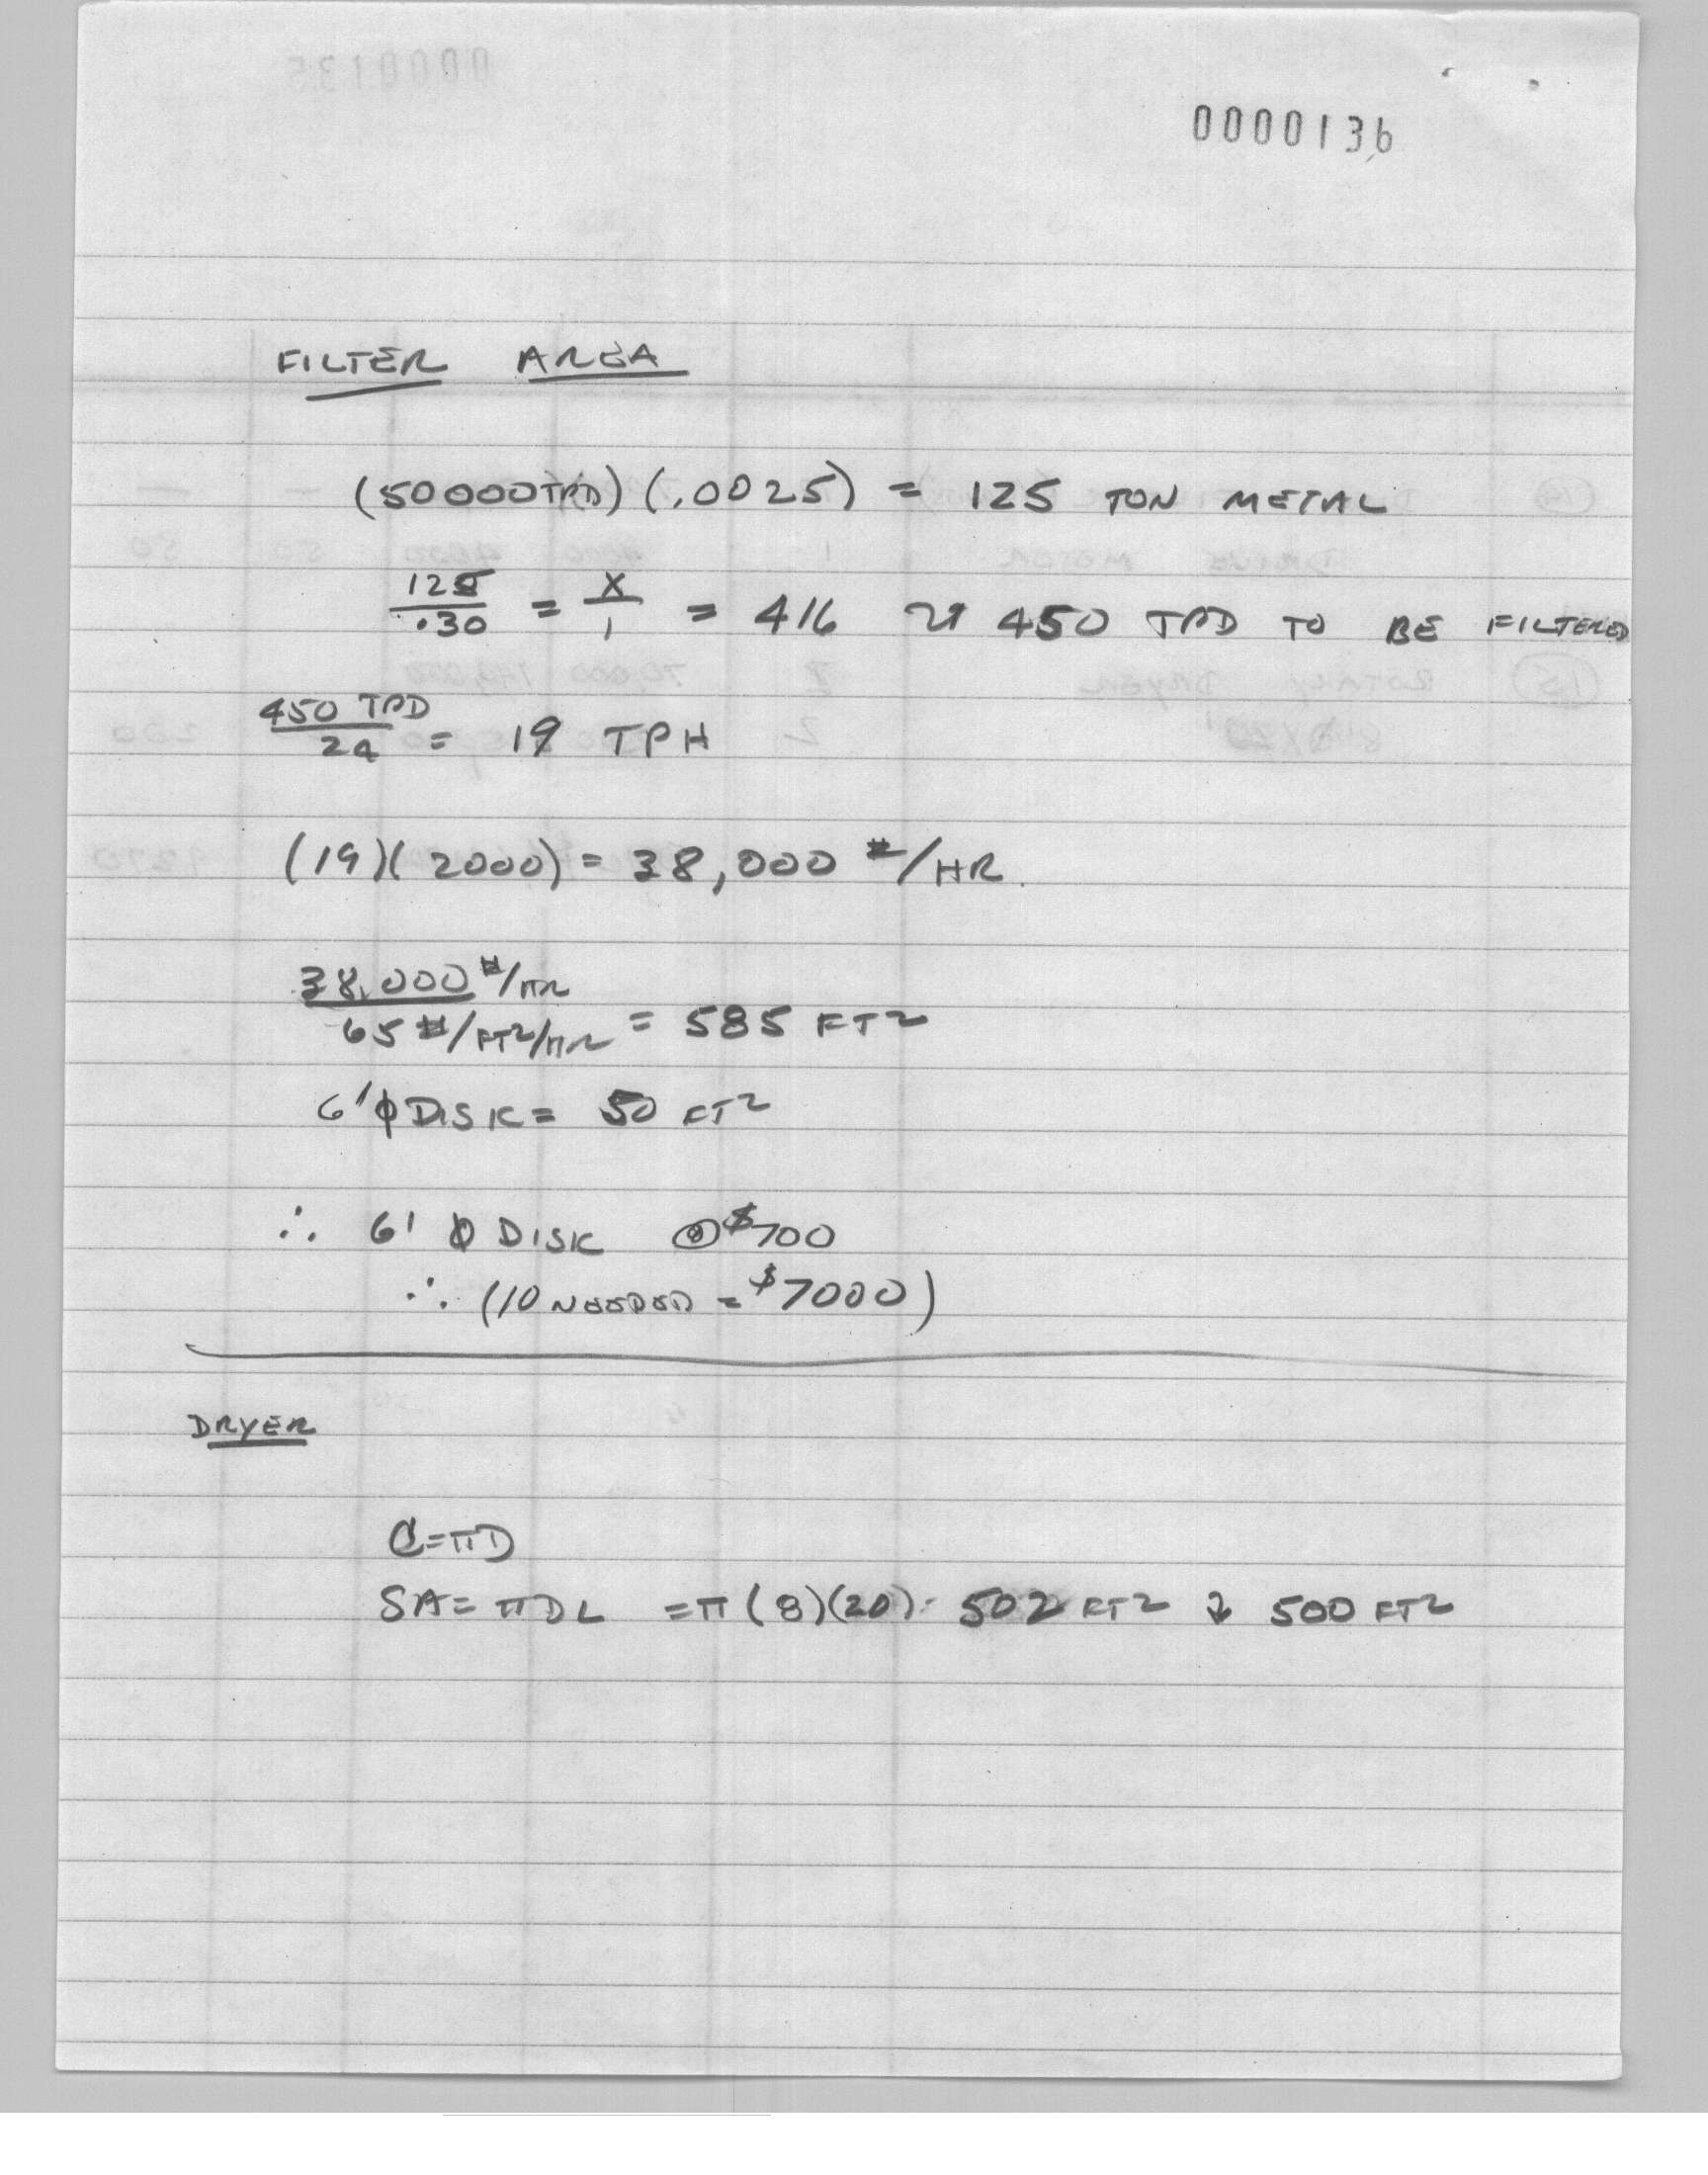 0000136
FILTER AREA
(50000TPD) (.0025) = 125 TON METAL
125/.30 = X/1 = 416 ≈ 450 TPD TO BE FILTERED
450 TPD/24 = 19 TPH
(19)(2000) = 38,000 #/HR.
38,000 #/HR / 65 #/FT2/HR = 585 FT2
6'φ DISK = 50 FT2
∴ 6' φ DISK @ $700
∴ (10 NEEDED = $7000)
DRYER
C=πD
SA= πDL =π (8)(20) = 502 FT2 ≈ 500 FT2